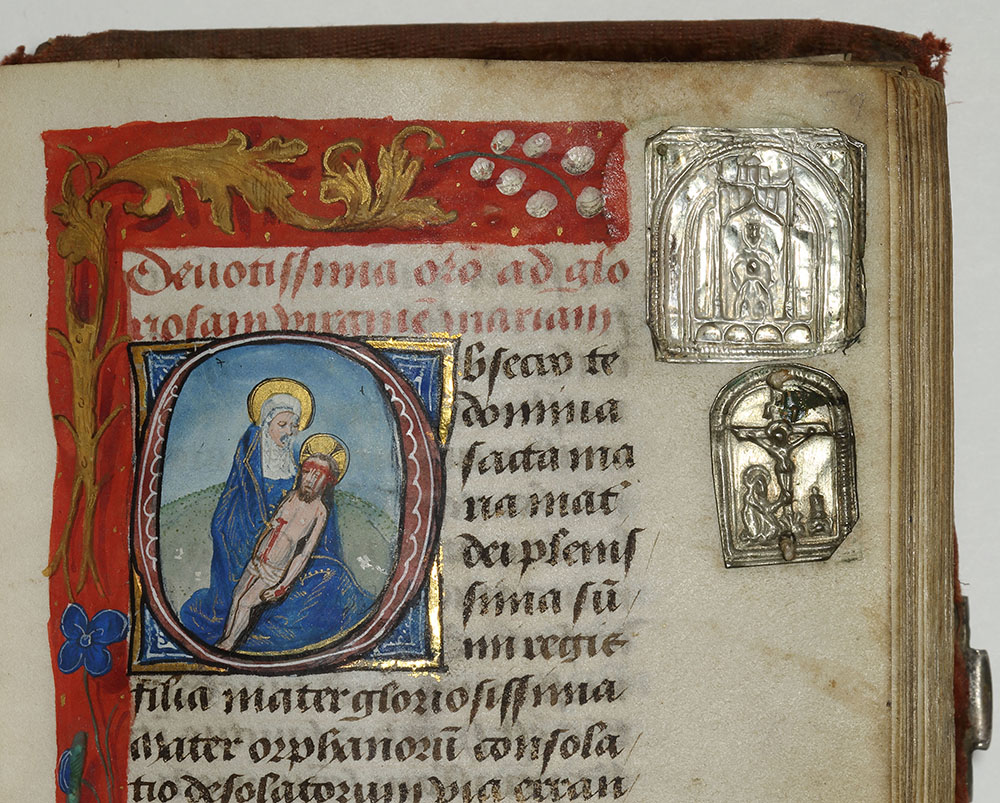 Deuotissima orõ ad glo
riosam virginẽ mariam
Obsecro te
domina
sacta ma
ria mat'
dei plenis/
sima sũ/
mi regis
filia mater gloriosissima
mater orphanorũ consola/
tio desolatorum via erran